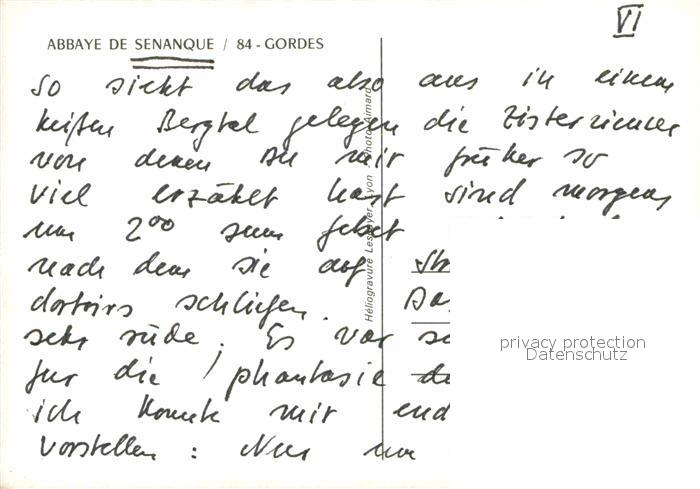 VI
ABBAYE DE SENANQUE / 84 - GORDES
so sieht das also aus in einem
heißen Bergtal gelegen die Zisterzienser
von denen Du mir früher so
viel erzählt hast sind morgens
um 2⁰⁰ zum Gebet
nach dem sie auf
dortoirs schliefen.
sehr rüde. Es war
für die Phantasie
ich konnte mir
vorstellen: Nur um
Héliogravure Lescuyer Lyon Photo Aimard
privacy protection
Datenschutz